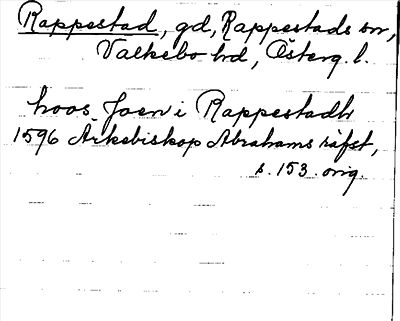 Rappestad, gd, Rappestads sn,
Valkebo hd, Österg. l.
hoos Joen i Rappestadh
1596 Ärkebiskop Abrahams räfst,
s. 153. orig.